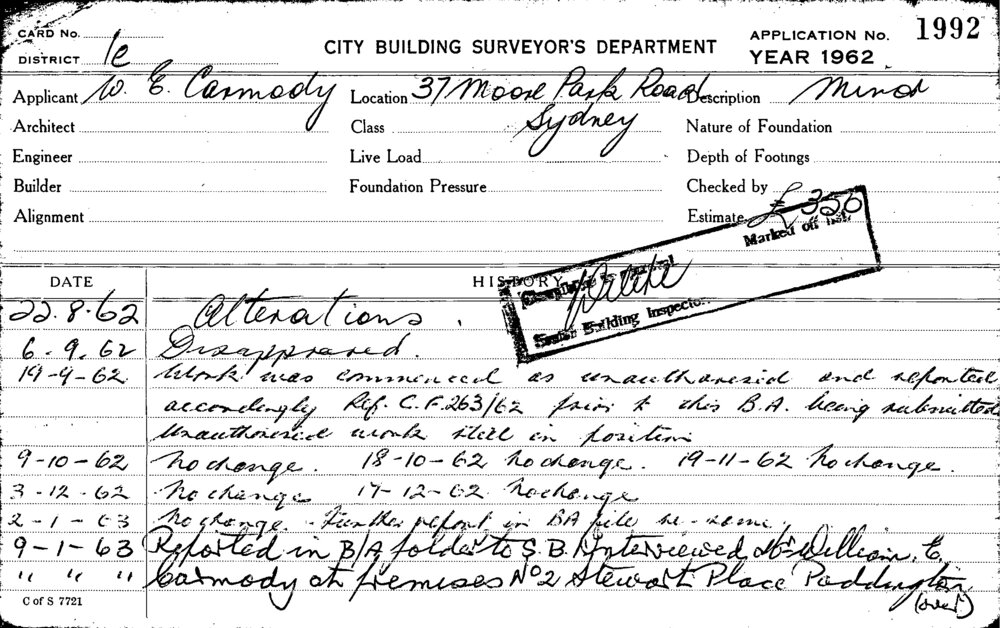 CARD No.
DISTRICT Ie
CITY BUILDING SURVEYOR'S DEPARTMENT
APPLICATION No. 1992
YEAR 1962
Applicant W. E. Carmody Location 37 Moore Park Road Description Minor
Architect Class Sydney Nature of Foundation
Engineer Live Load Depth of Footings
Builder Foundation Pressure Checked by
Alignment Estimate £350
Marked off list.
Building Inspector.
DATE HISTORY
22.8.62 Alterations.
6.9.62 Disapproved.
19-9-62 Work was commenced as unauthorised and reported
accordingly Ref. C.F.263/62 prior to this B.A. being submitted
Unauthorised work still in position
9-10-62 No change. 18-10-62 No change. 19-11-62 No change.
3-12-62 No change 17-12-62 No change
2-1-63 No change. Further report in BA file re same.
9-1-63 Reported in B/A folder to S.B.I. Interviewed Mr William. E.
" " " Carmody at premises No 2 Stewart Place Paddington
(over)
C of S 7721